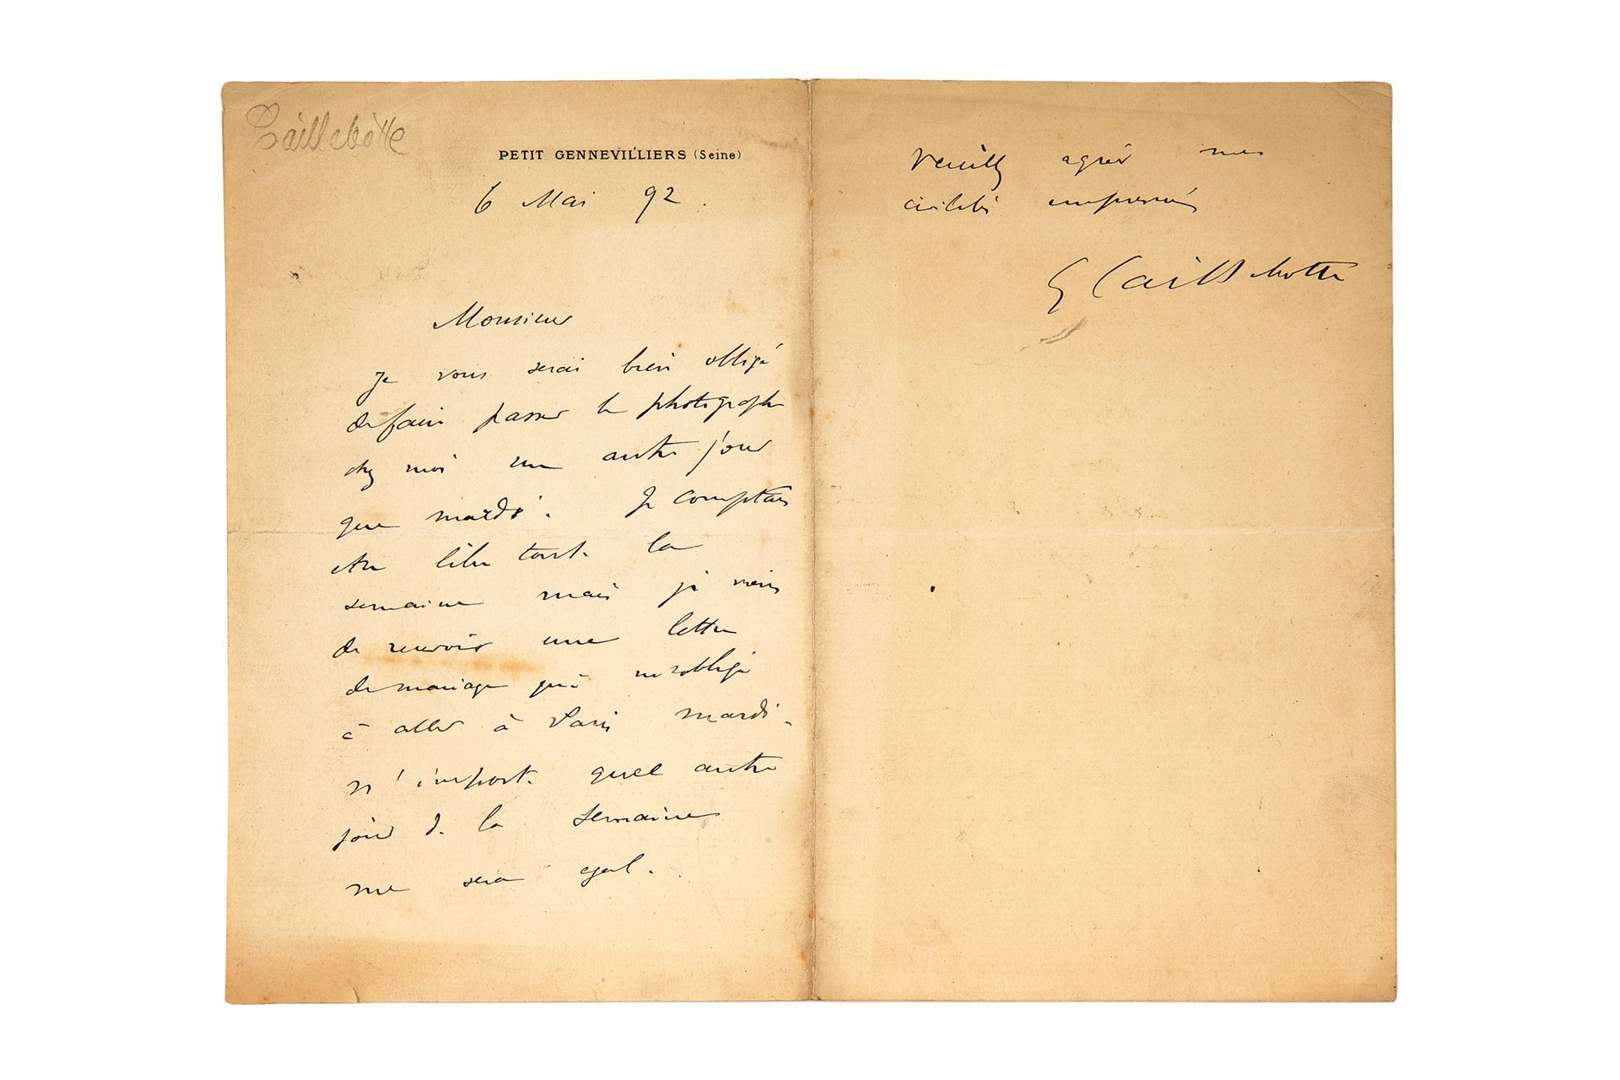 Caillebotte
PETIT GENNEVILLIERS (Seine)
6 Mai 92.
Monsieur
Je vous serai bien obligé
de faire passer le photographe
chez moi un autre jour
que mardi. Je comptais
être libre toute la
semaine mais je viens
de recevoir une lettre
de mariage qui m'oblige
à aller à Paris mardi.
n'importe quel autre
jour de la semaine
me sera egal.
Veuillez agréer mes
civilités empressées
G Caillebotte